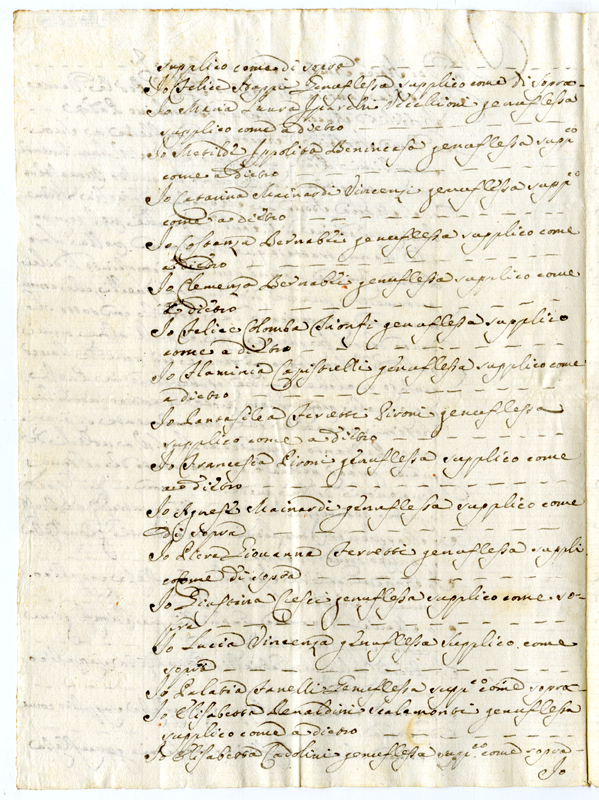 supplico come di sopra
Io Felice Stoppi genuflessa supplico come di sopra
Io Maria Laura genuflessa
supplico come a dietro
Io Matilde Ippolita Benincasa genuflessa supp.co
come a dietro
Io Catarina Mainardi Vincenzi genuflessa supp.co
come a dietro
Io Costanza Bernabei genuflessa supplico come
a dietro
Io Clemenza Bernabei genuflessa supplico come
a dietro
Io Felice Colomba Trionfi genuflessa supplico
come a dietro
Io Flaminia Capistrelli genuflessa supplico come
a dietro
Io Pantasilea Ferretti Pironi genuflessa
supplico come a dietro
Io Francesca Pironi genuflessa supplico come
a dietro
Io Agnese Mainardi genuflessa supplico come
di sopra
Io Giovanna Ferretti genuflessa suppli
come di sopra
Io Giustina Cresci genuflessa supplico come so-
pra
Io Lucia Vincenza genuflessa supplico come
sopra
Io Palatia Fanelli genuflessa supp.co come sopra
Io Elisabetta Renaldini Scalamonti genuflessa
supplico come a dietro
Io Elisabetta Cadolini genuflessa sup.co come sopra
Io